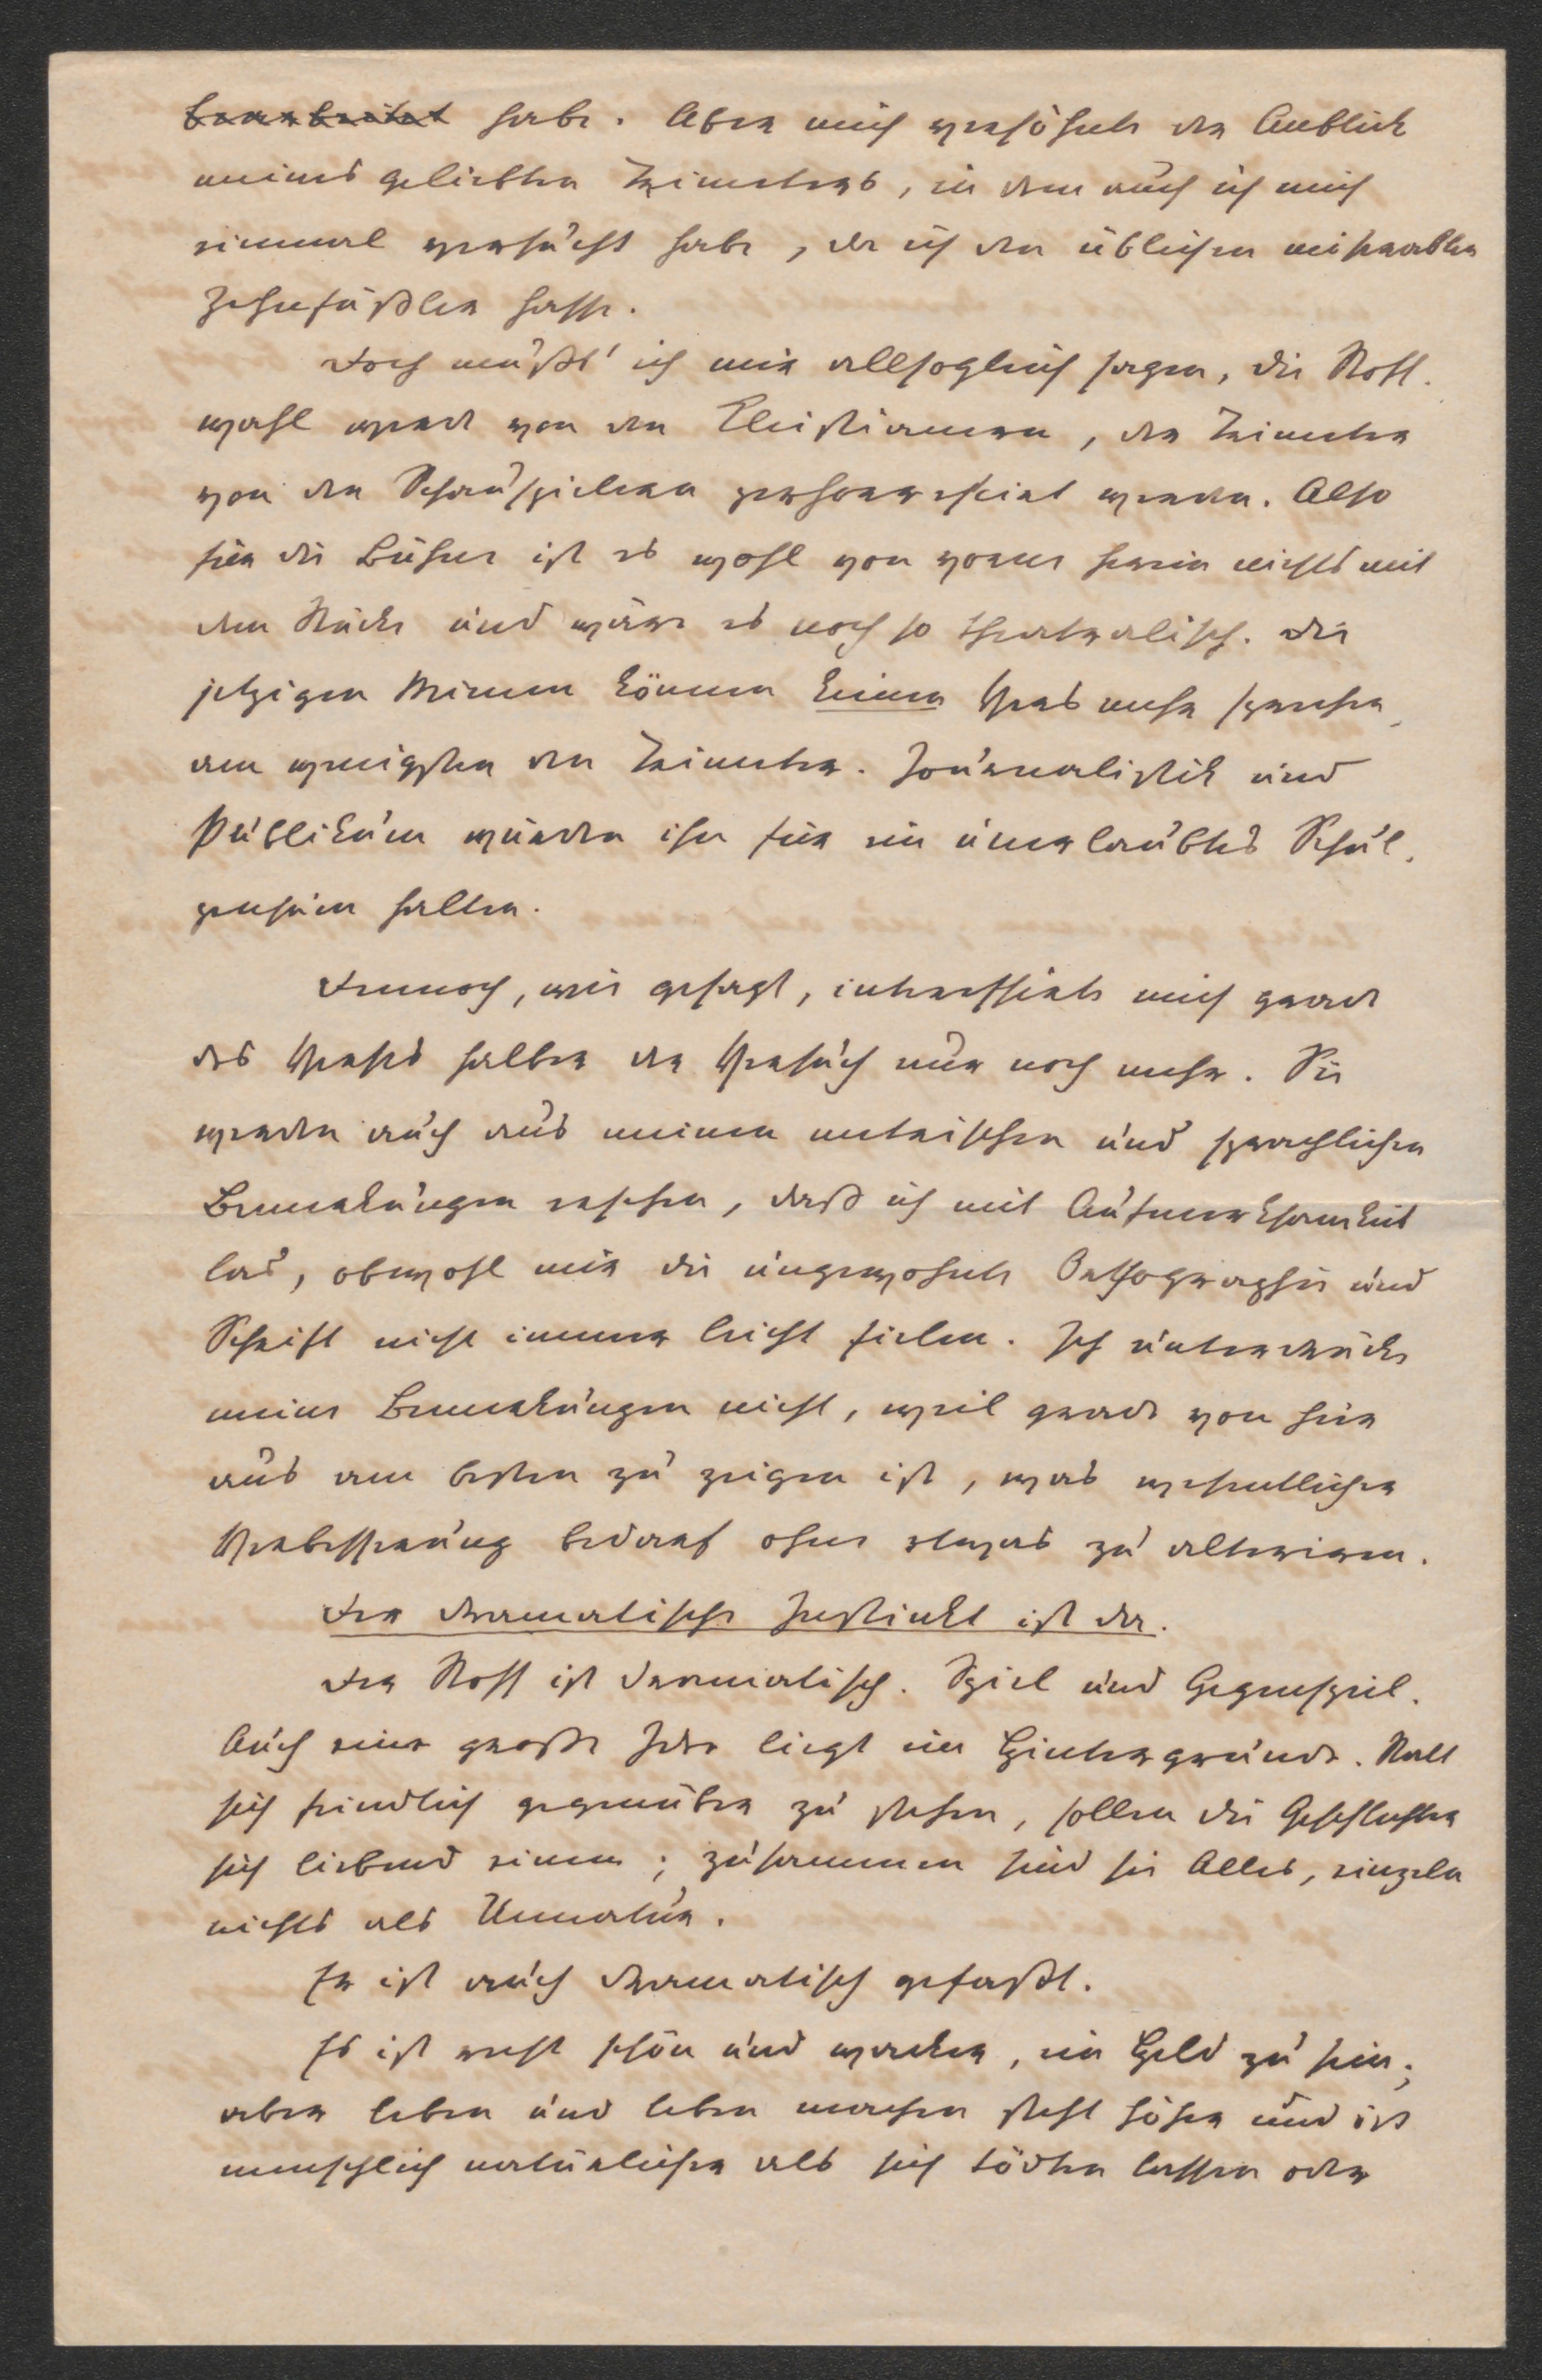 bearbeitet habe. Aber mich versöhnte der Anblick
meines geliebten Trimeters, in dem auch ich mich
einmal versucht habe, da ich den üblichen miserablen
Zehnfüßler hasse.
Doch mußt' ich mir allsogleich sagen, die Stoff-
wahl werde von den Kleistianern, der Trimeter
von den Schauspielern perhorresciert werden. Also
für die Bühne ist es wohl von vorne herein nichts mit
dem Stücke und wäre es noch so theatralisch. Die
jetzigen Mimen können keinen Vers mehr sprechen,
am wenigsten den Trimeter. Journalistik und
Publikum würden ihn für ein unerlaubtes Schul-
pensum halten.
Dennoch, wie gesagt, interessierte mich gerade
des Verses halber der Versuch nur noch mehr. Sie
werden auch aus meinen metrischen und sprachlichen
Bemerkungen ersehen, daß ich mit Aufmerksamkeit
las, obwohl mir die ungewohnte Orthographie und
Schrift nicht immer leicht fielen. Ich unterdrücke
meine Bemerkungen nicht, weil gerade von hier
aus am besten zu zeigen ist, was wesentlicher
Verbesserung bedarf ohne etwas zu alterieren.
Der dramatische Instinkt ist da.
Der Stoff ist dramatisch. Spiel und Gegenspiel.
Auch eine große Idee liegt im Hintergrunde. Statt
sich feindlich gegenüber zu stehen, sollen die Geschlechter
sich liebend einen; zusammen sind sie Alles, einzeln
nichts als Unnatur.
Er ist auch dramatisch gefaßt.
Es ist recht schön und wacker, ein Held zu sein;
aber leben und leben machen steht höher und ist
menschlich natürlicher als sich tödten lassen oder